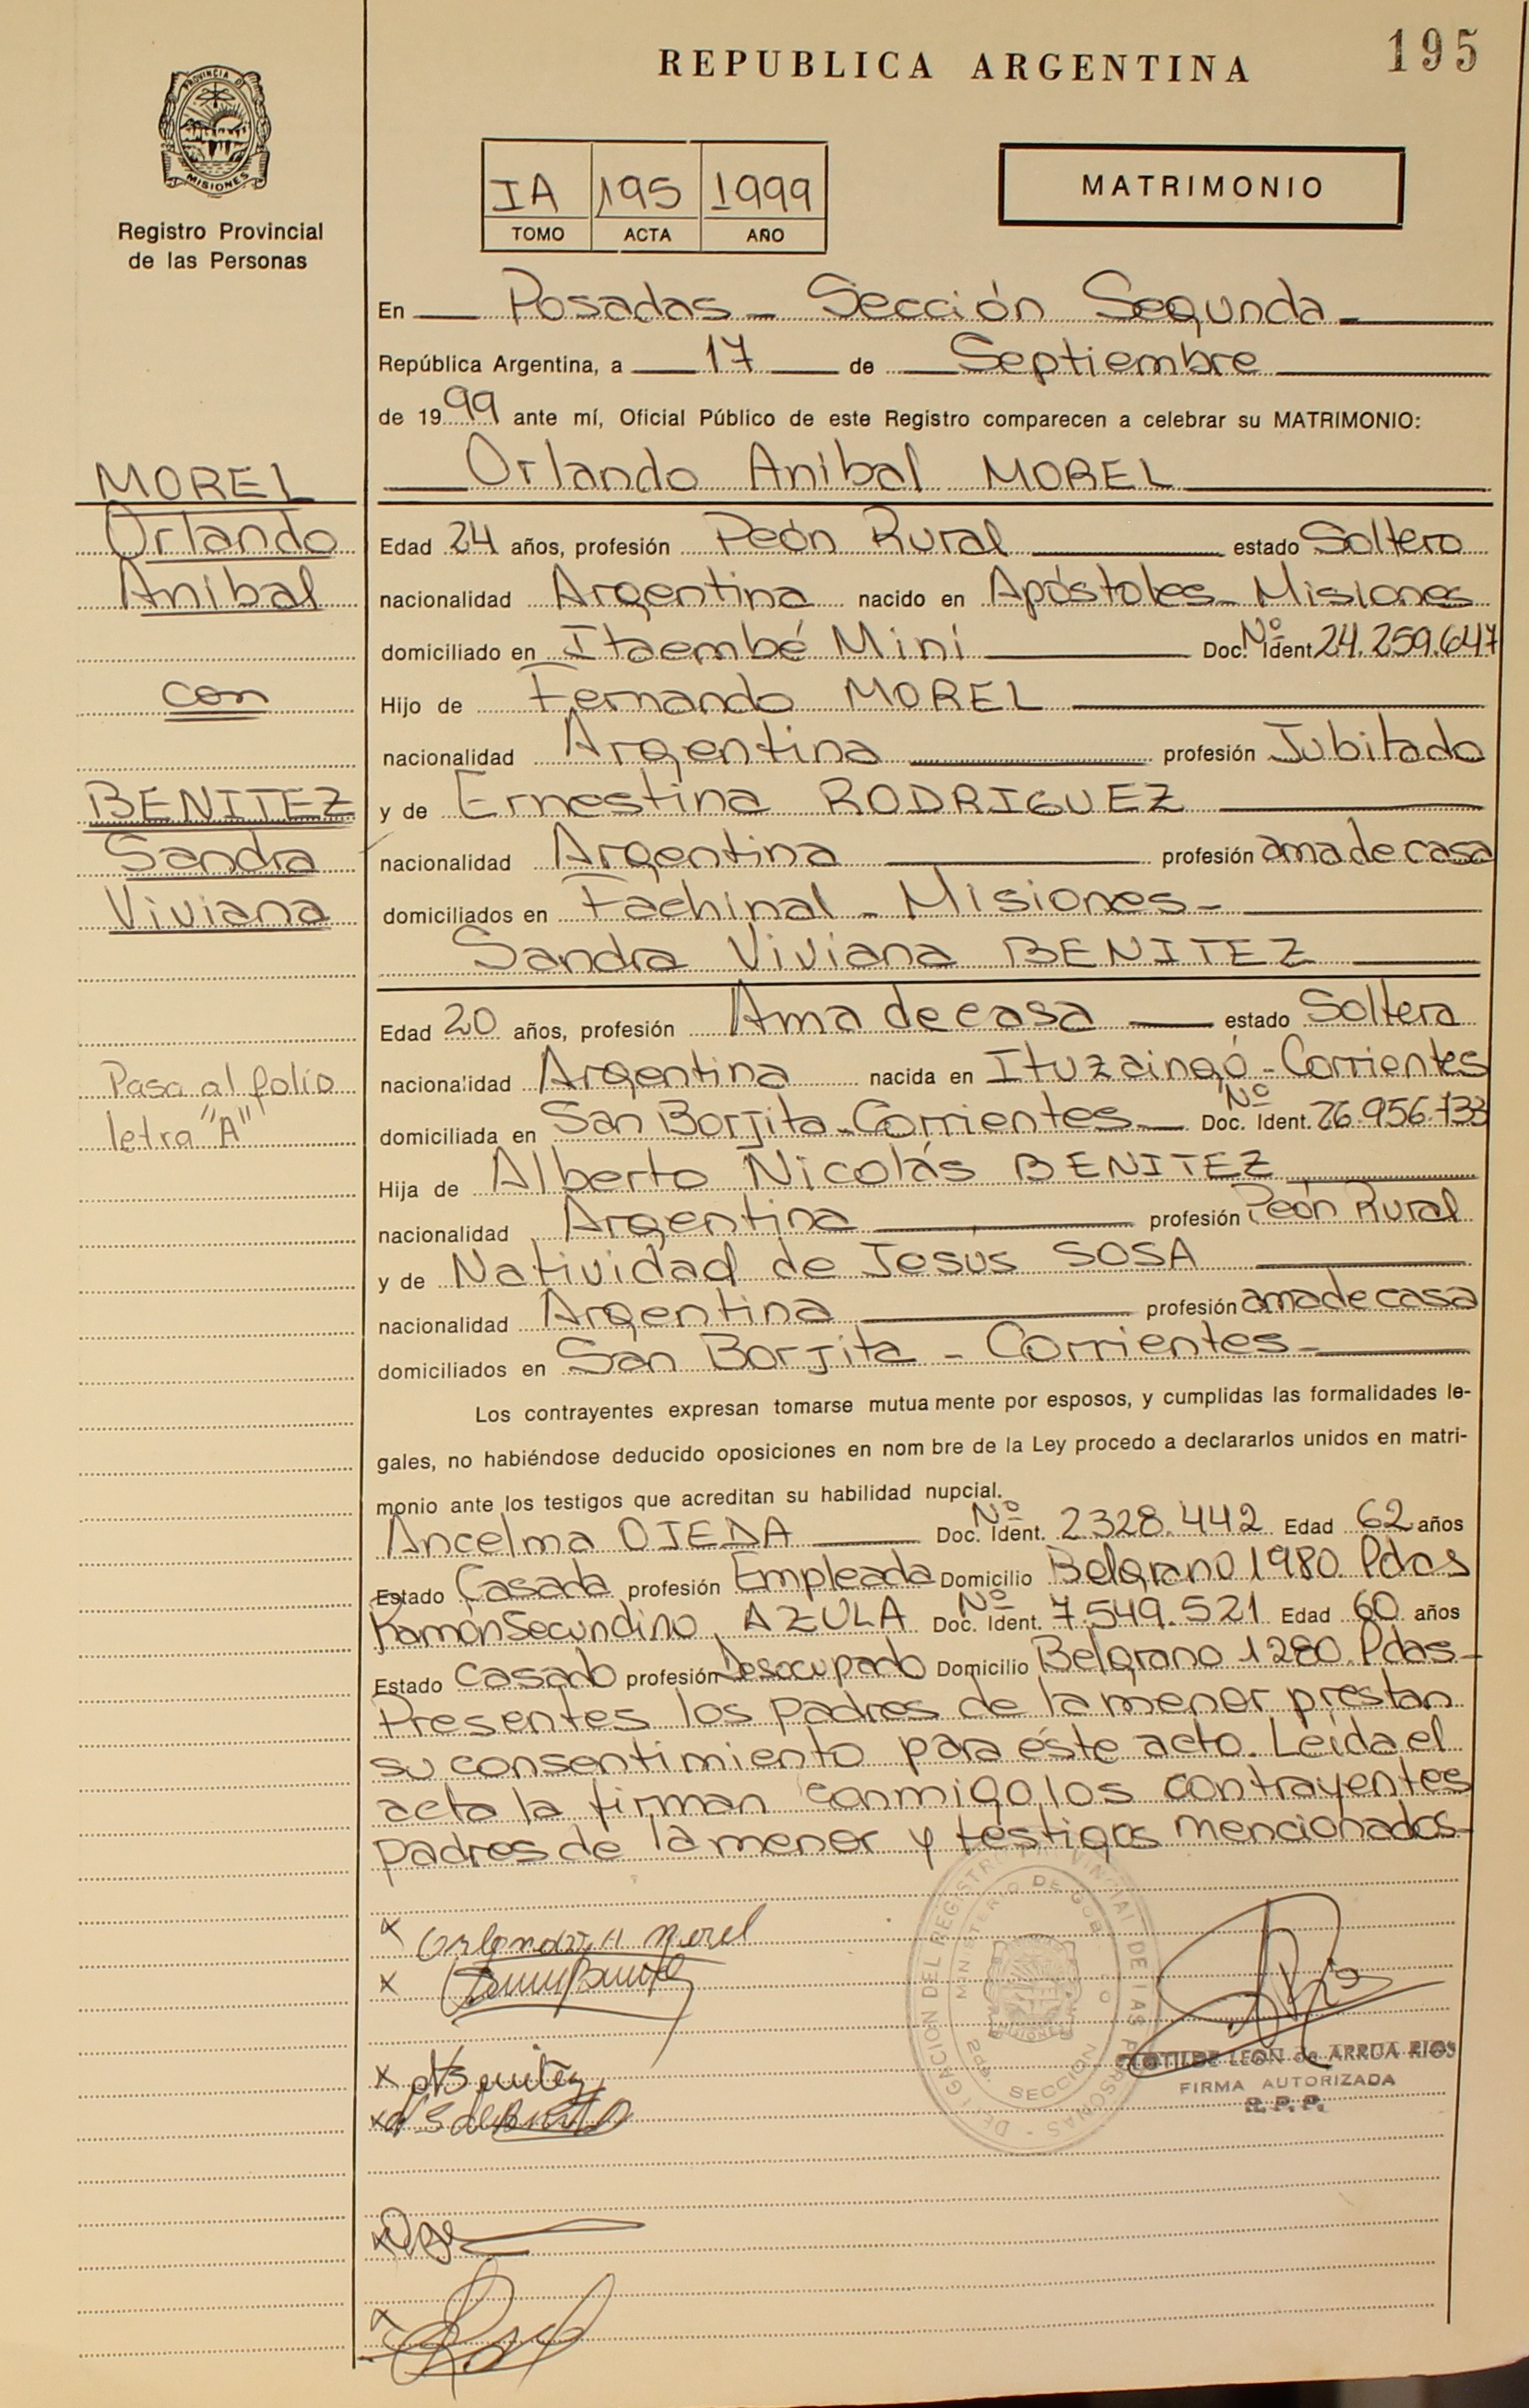 195
REPUBLICA ARGENTINA
PROVINCIA DE
MISIONES
Registro Provincial
de las Personas
IA 195 1999
TOMO ACTA AÑO
MATRIMONIO
En Posadas - Sección Segunda -
República Argentina, a 17 de Septiembre
de 1999 ante mí, Oficial Público de este Registro comparecen a celebrar su MATRIMONIO:
Orlando Anibal MOREL
MOREL
Orlando
Anibal
con
BENITEZ
Sandra
Viviana
Pasa al folio
letra "A"
Edad 24 años, profesión Peón Rural estado Soltero
nacionalidad Argentina nacido en Apóstoles - Misiones
domiciliado en Itaembé Miní Doc. Nº Ident 24.259.647
Hijo de Fernando MOREL
nacionalidad Argentina profesión Jubilado
y de Ernestina RODRIGUEZ
nacionalidad Argentina profesión ama de casa
domiciliados en Fachinal - Misiones -
Sandra Viviana BENITEZ
Edad 20 años, profesión Ama de casa estado Soltera
nacionalidad Argentina nacida en Ituzaingó - Corrientes
domiciliada en San Borjita - Corrientes - Doc. Nº Ident. 26.956.733
Hija de Alberto Nicolás BENITEZ
nacionalidad Argentina profesión Peón Rural
y de Natividad de Jesús SOSA
nacionalidad Argentina profesión ama de casa
domiciliados en San Borjita - Corrientes -
Los contrayentes expresan tomarse mutua mente por esposos, y cumplidas las formalidades le-
gales, no habiéndose deducido oposiciones en nom bre de la Ley procedo a declararlos unidos en matri-
monio ante los testigos que acreditan su habilidad nupcial.
Ancelma OJEDA Doc. Nº Ident. 2328.442 Edad 62 años
Estado Casada profesión Empleada Domicilio Belgrano 1980 Pdas
Ramón Secundino AZULA Doc. Nº Ident. 7.549.521 Edad 60 años
Estado Casado profesión Desocupado Domicilio Belgrano 1280 Pdas -
Presentes los padres de la menor prestan
su consentimiento para éste acto. Leída el
acta la firman conmigo, los contrayentes
padres de la menor y testigos mencionados -
x Orlando A Morel
x
x A Benitez
x
x
x
DELEGACION DEL REGISTRO PROVINCIAL DE LAS PERSONAS
MINISTERIO DE GOBIERNO
MISIONES
SECCION
CLOTILDE LEON de ARRUA RIOS
FIRMA AUTORIZADA
R.P.P.